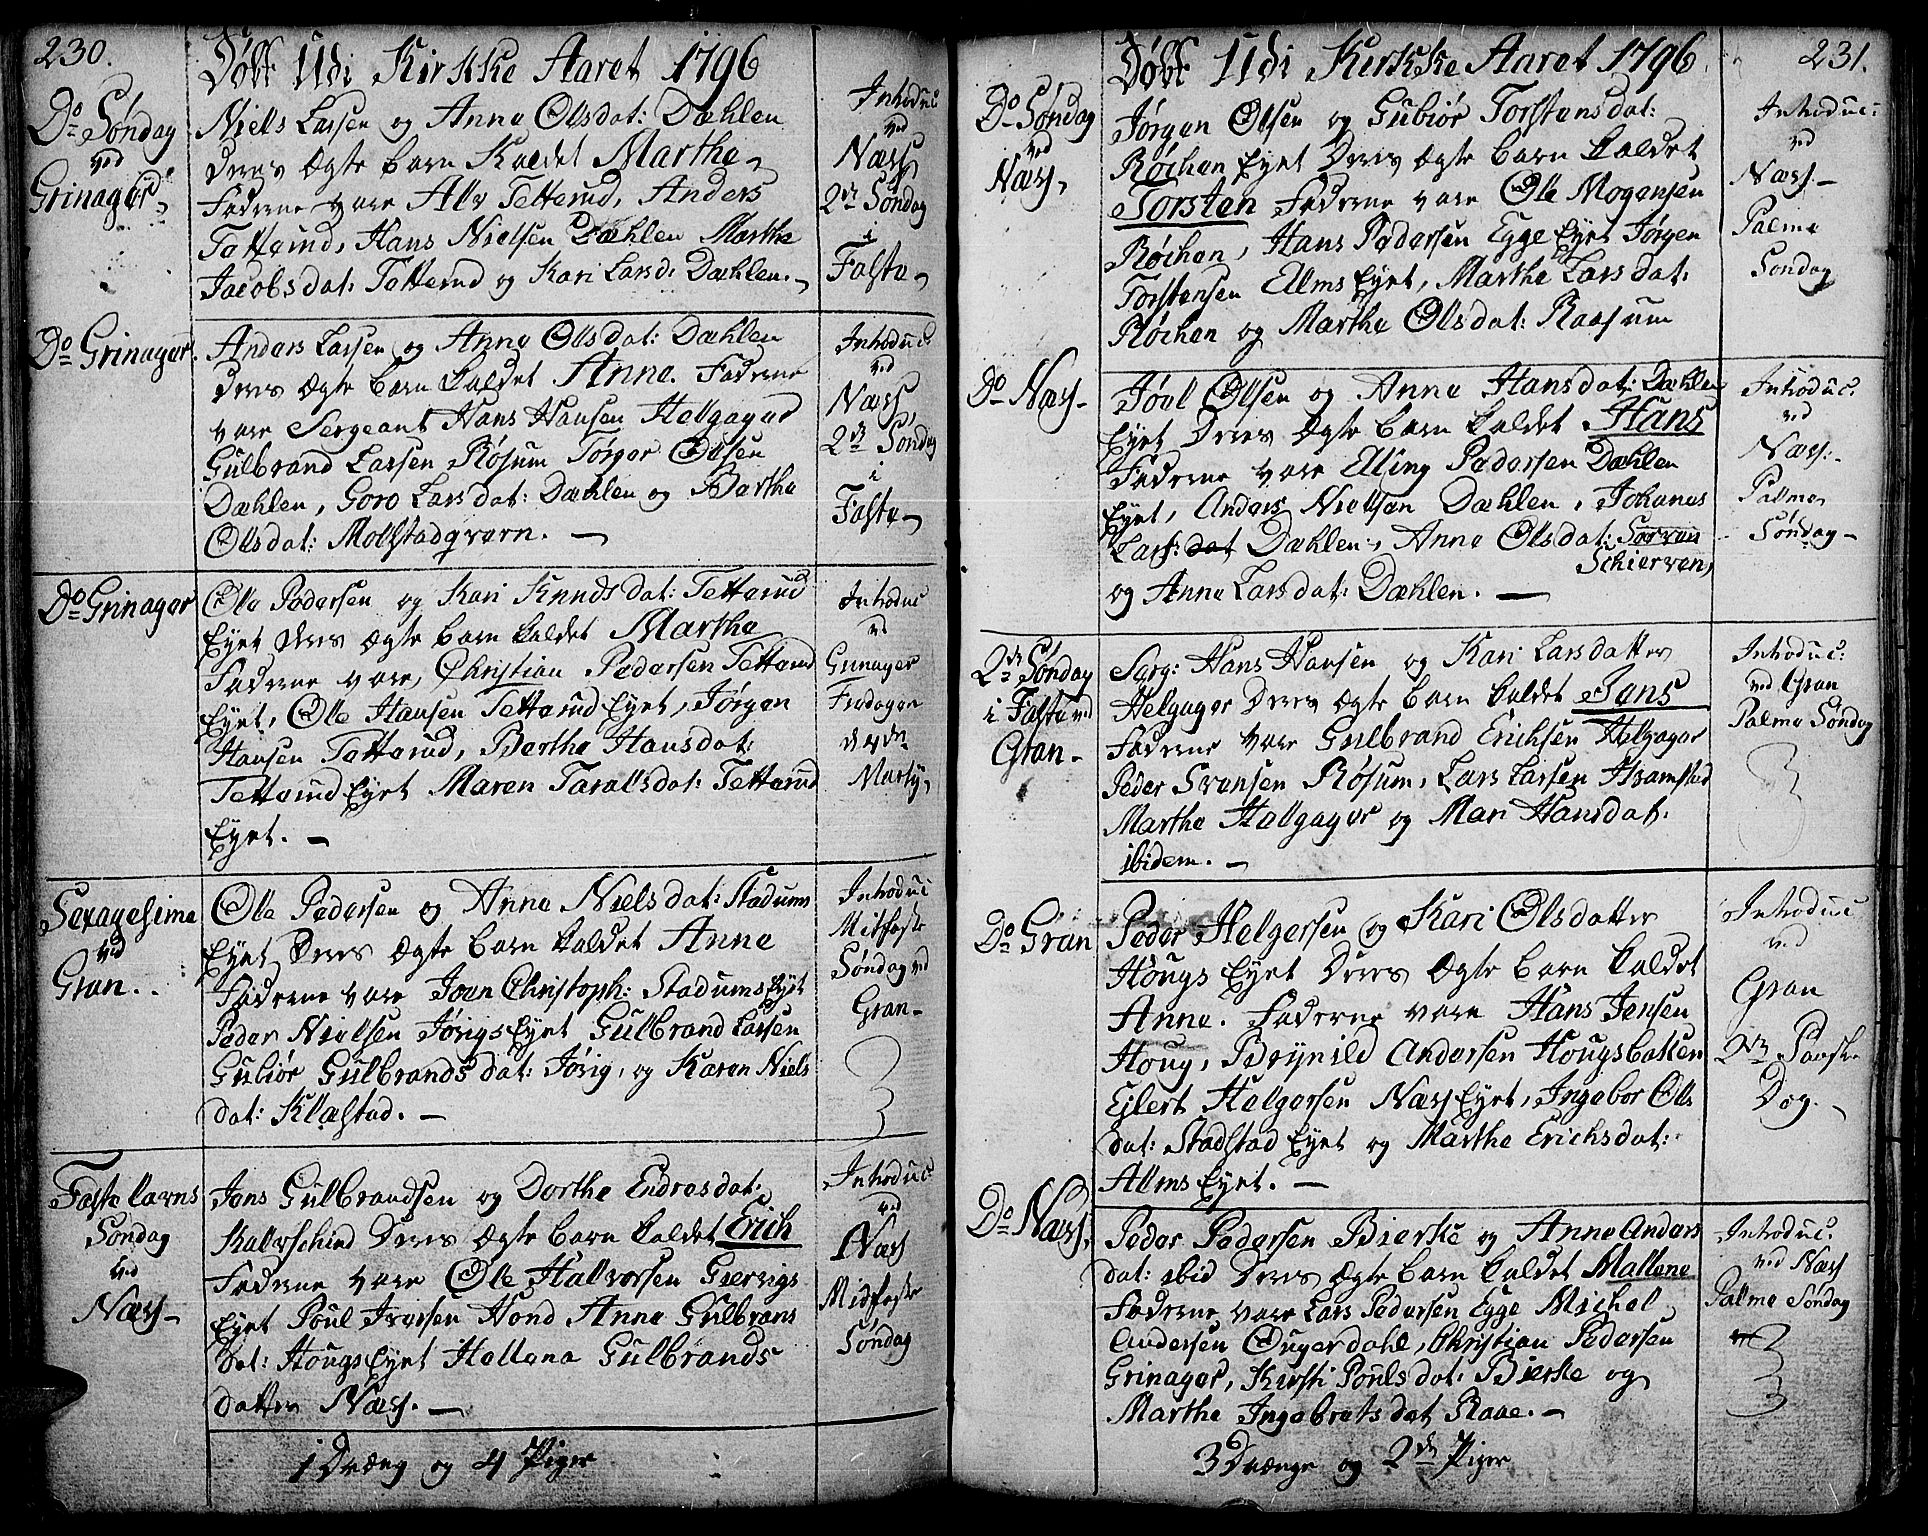 230.
Døbt Udi Kirkke Aaret 1796
Do Søndag
ved
Grinager
Niels Larsen og Anne Olsdat: Dæhlen
deres Ægte barn Kaldet Marthe
Faderne vare Alv Tetterud, Anders
Tetterud, Hans Nielsen Dæhlen Marthe
Jacobsdat: Tetterud og Kari Larsd: Dæhlen.
Introduc
ved
Næss
2den Søndag
i
Faste
Do Grinager.
Anders Larsen og Anne Olsdat: Dæhlen
deres Ægte barn kaldet Anne. Faderne
vare Sergeant Hans Hansen Helgager
Gulbrand Larsen Røsum Jørger Olsen
Dæhlen, Goro Larsdat: Dæhlen og Berthe
Olsdat: Mollstadqvern. —
Introduc
ved
Næss
2den Søndag
i
Faste
Do Grinager
Ole Pedersen og Kari Knudsdat: Tetterud
Eyet deres Ægte barn kaldet Marthe
Faderne vare, Christian Pedersen Tetterud
Eyet, Ole Hansen Tetterud Eyet, Jørgen
Hansen Tetterud, Berthe Hansdat:
Tetterud Eyet Maren Taralsdat: Tetterud
Eyet. —
Introduc
ved
Grinager
Fredagen
d 4de
Marty,
Sexagesima
ved
Gran.
Ole Pedersen og Anne Nielsdat: Stadums
Eyet Deres Ægte barn kaldet Anne
Faderne vare Joen Christoph: Stadums Eyet
Peder Nielsen Jørigs Eyet Gulbrand Larsen
Gubiør Gulbrandsdat: Jørig, og Karen Niels
dat: Klæstad. —
Introduc
Mitfaste
Søndag ved
Gran
Fastelavns
Søndag
ved
Næss
Jens Gulbrandsen og Dorthe Endresdat:
Kalvschind Deres Ægte barn kaldet Erich
Faderne vare Ole Halvorsen Giervigs
Eyet Poul Iversen Hond Anne Gulbrans
dat: Hougs Eyet Hellena Gulbrands
datter Næss. —
Introduc
ved
Næss
Midfaste
Søndag
1 Dræng og 4 Piger
231.
Døbt Udi Kirkke Aaret 1796
Do Søndag
ved
Næss,
Jørgen Olsen og Gubiør Torstensdat:
Røchen Eyet Deres Ægte barn kaldet
Torsten Faderne vare Ole Mogensen
Røchen, Hans Pedersen Egge Eyet Jørgen
Torstensen Elms Eyet, Marthe Larsdat:
Røchen og Marthe Olsdat: Raasum
Introduc:
ved
Næss.
Palme
Søndag
Do Næss
Joel Olsen og Anne Hansdat: Dæhlen
Eyet Deres Ægte barn kaldet Hans
Faderne vare Elling Pedersen Dæhlen
Eyet, Anders Nielsen Dæhlen, Johanes
Lars: dat Dæhlen, Anne Olsdat:
Schierven,
og Anne Larsdat: Dæhlen. —
Introduc.
ved
Næss.
Palme
Søndag
2den Søndag
i Faste ved
Gran
Serg: Hans Hansen og Kari Larsdatter
Helgager Deres Ægte barn kaldet Jens
Faderne vare Gulbrand Erichsen Helgager
Peder Svensen Røsum, Lars Larsen Hramstad
Marthe Helgager og Mari Hansdat:
ibidem. —
Introduc:
ved Gran
Palme Søndag
Do Gran
Peder Helgersen og Kari Olsdatter
Hougs Eyet Deres Ægte barn kaldet
Anne. Faderne vare Hans Jensen
Houg, Brynild Andersen Hougsbakken
Ejlert Helgersen Næss Eyet, Ingebor Ols
dat: Stadstad Eyet og Marthe Erichsdat:
Alms Eyet. —
Introduc
ved
Gran
2den Paaske
Dag.
Do Næss,
Peder Pedersen Bierke og Anne Anders
dat: ibid Deres Ægte barn kaldet Mallene
Faderne vare Lars Pedersen Egge Michel
Andersen Ougerdahl, Christian Pedersen
Grinager, Kirsti Poulsdat: Bierke og
Marthe Ingebretsdat Raae. —
Introduc.
ved Næss
Palme Søndag
3 Drænge og 2de Piger